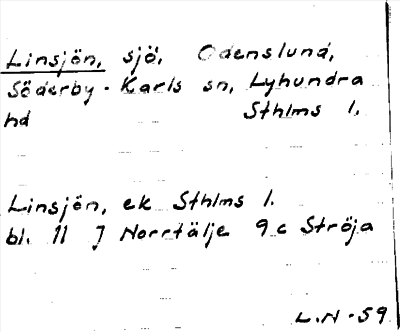 Linsjön, sjö, Odenslund,
Söderby-Karls sn, Lyhundra
hd Sthlms l.
Linsjön, ek Sthlms l.
bl. 11 J Norrtälje 9c Ströja
L.N-59